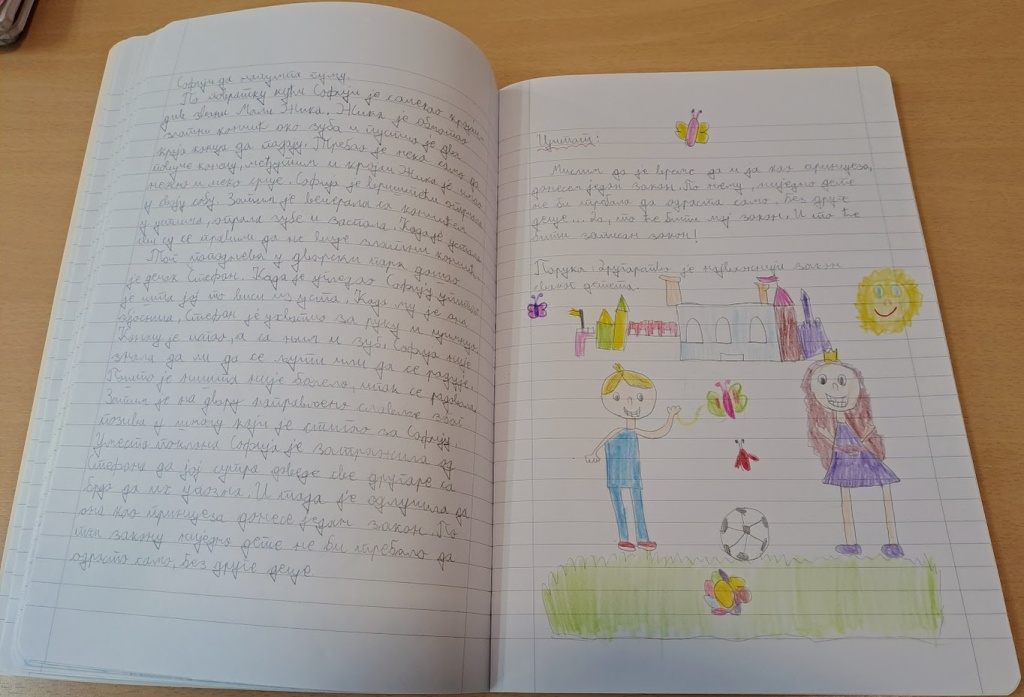 Софији да
По повратку кући Софији је
див звани Мали Жика. Жика је обмотао
златни кончић око зуба и пустио је два
краја конца да падају. Требао је неко само да
повуче конац, међутим и крзли Жика је имао
нежно и меко срце. Софија је вриштећи отрчала
у своју собу. Затим је вечерала са
опрала зубе и заспала. Када је устала
сви су се правили да не виде златни кончић.
Тог поподнева у дворски парк дошао
је дечак Стефан. Када је угледао Софију упитао
је шта јој то виси из уста. Када му је она
Стефан је ухватио за руку и цимнуо.
Конац је испао, а са њим и зуб. Софија није
знала да ли да се љути или да се радује.
Пошто је ништа није болело, ипак се радовала.
Затим је на двору направљено славље због
позива у школу који је стигао за Софију.
Уместо поклона Софија је затражила од
Стефана да јој сутра доведе све другаре са
брда да их упозна. И тада је одлучила да
она као принцеза донесе један закон. По
том закону ниједно дете не би требало да
одраста само, без друге деце.
Цитат:
Мислим да је време да и ја као принцеза,
донесем један закон. По њему, ниједно дете
не би требало да одраста само. Без друге
деце... да, то ће бити мој закон. И то ће
бити записан закон!
Порука: Другарство је најважнији закон
сваког детета.